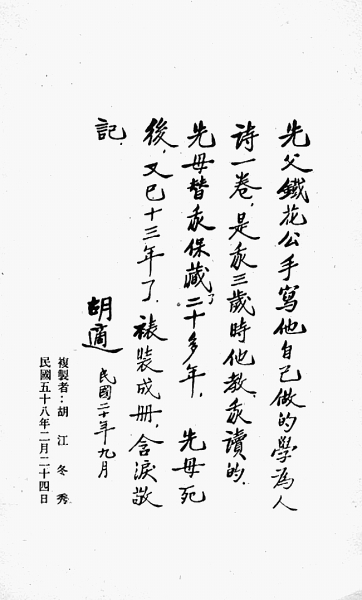 先父鐵花公手寫他自己做的學為人
詩一卷，是我三歲時他教我讀的．
先母替我保藏了二十多年，先母死
後，又已十三年了．裱裝成册，含淚敬
記．
胡適 民國二十年九月
複製者：胡江冬秀
民國五十八年二月二十四日